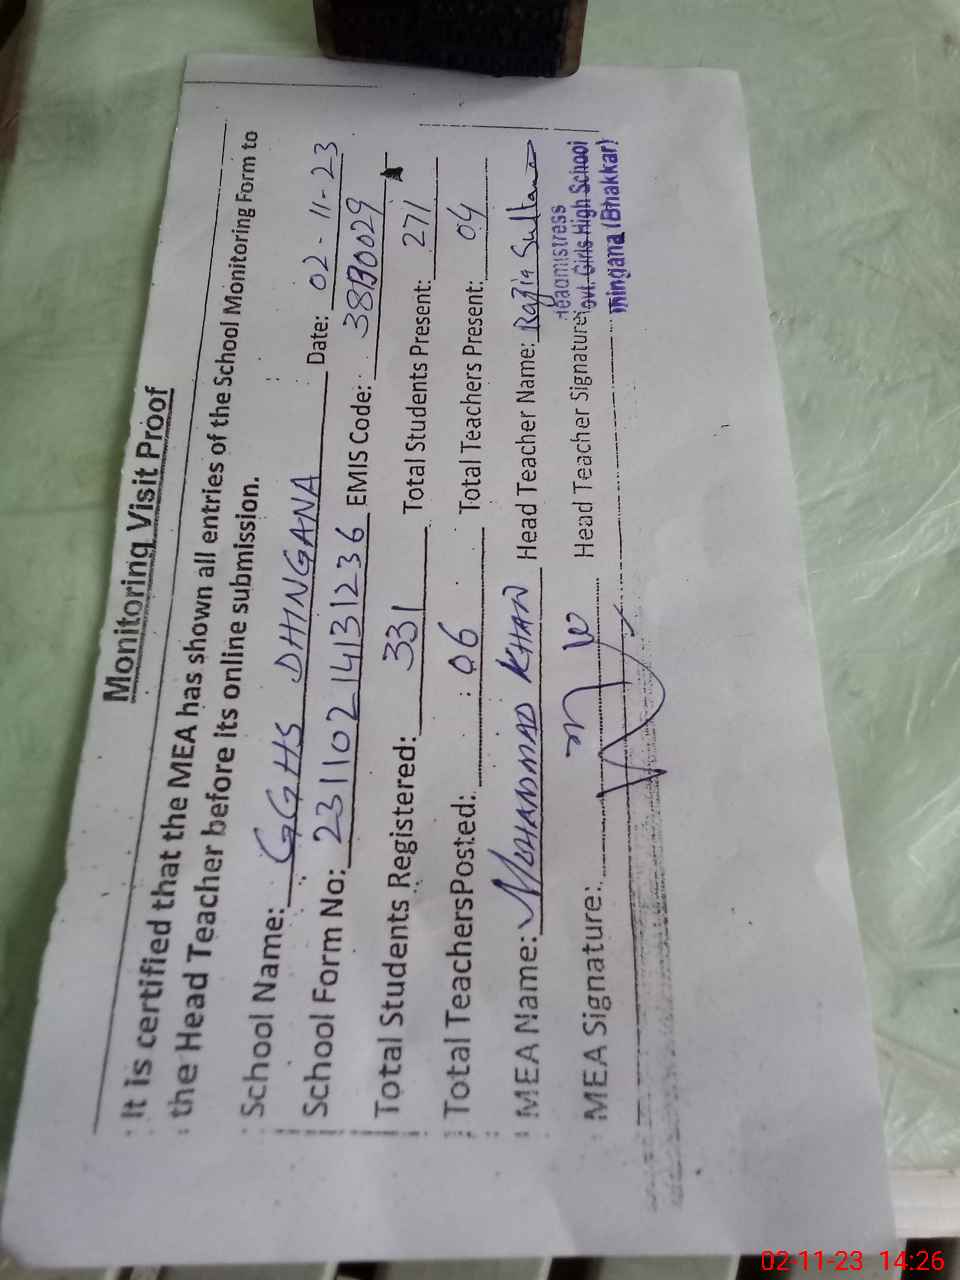 Monitoring Visit Proof
It is certified that the MEA has shown all entries of the School Monitoring Form to
the Head Teacher before its online submission.
School Name: GGHS DHINGANA Date: 02-11-23
School Form No: 23110214131236 EMIS Code: 38130029
Total Students Registered: 331 Total Students Present: 271
Total TeachersPosted: 06 Total Teachers Present: 04
MEA Name: MUHAMMAD KHAN Head Teacher Name: Razia Sultana
MEA Signature: Head Teacher Signature:
Headmistress
Govt. Girls High School
Dhingana (Bhakkar)
02-11-23 14:26